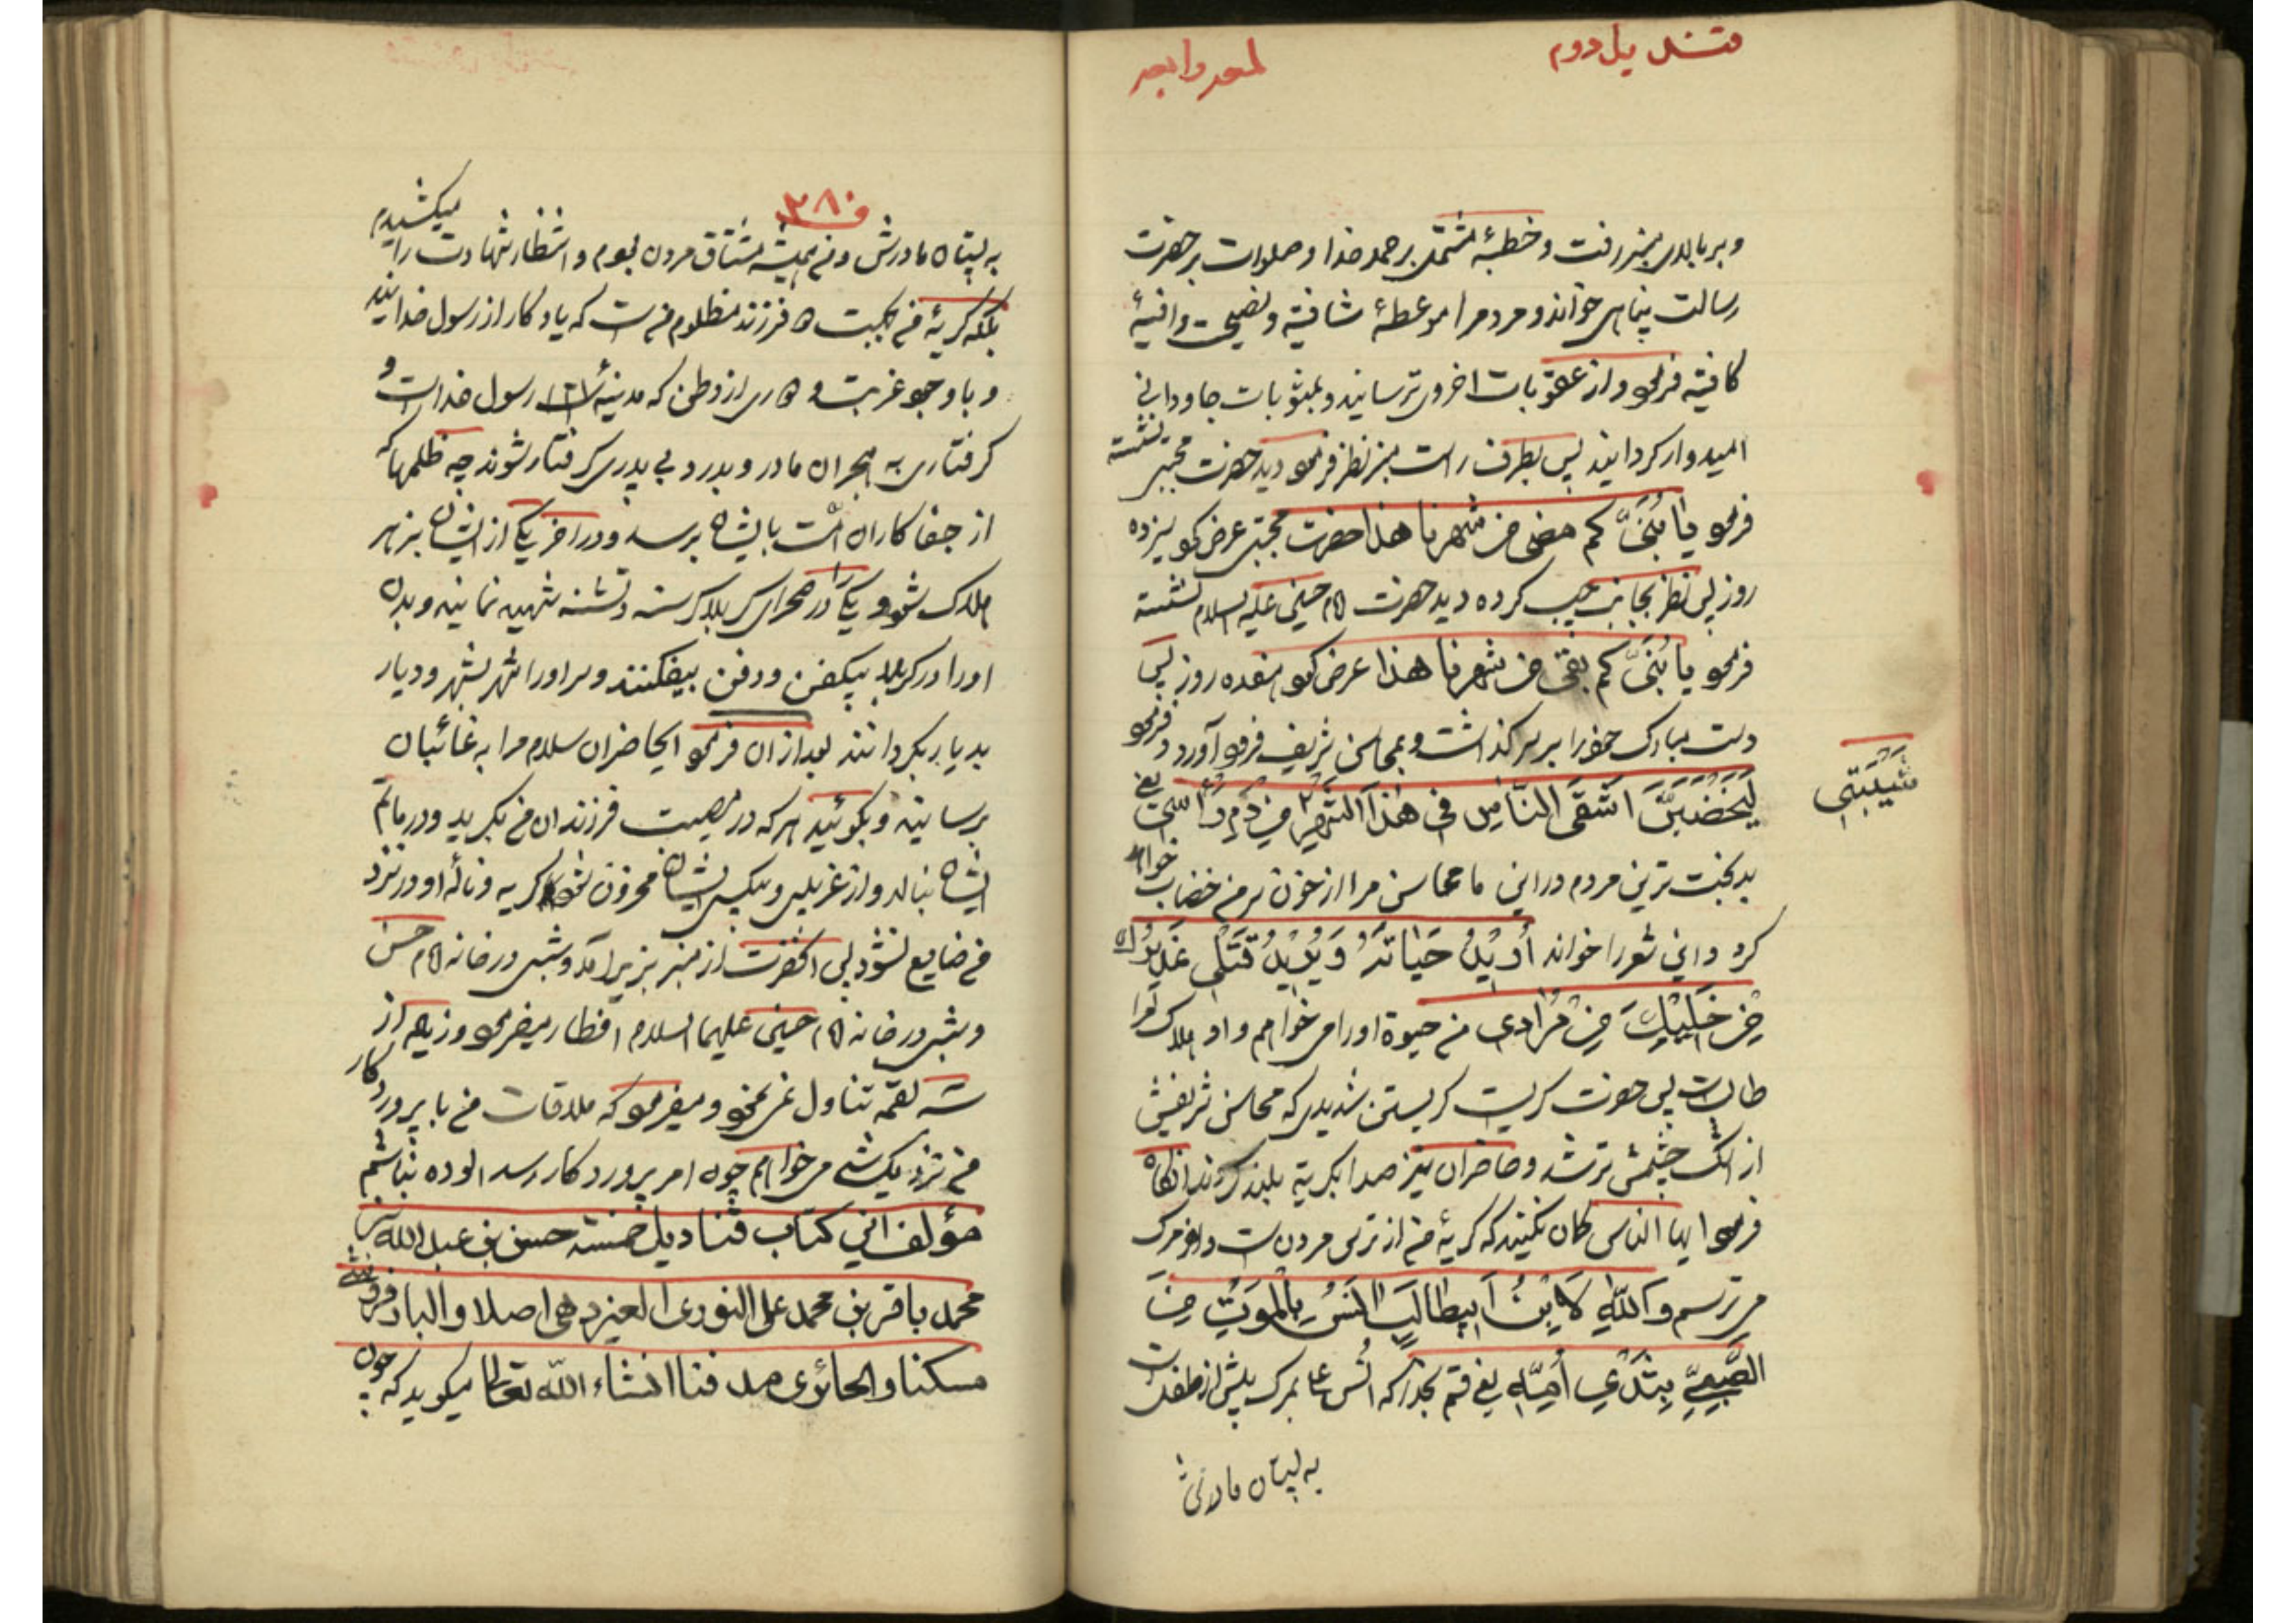 قندیل دوم
و بر بالای منبر رفت و خطبهٔ مشتمل بر حمد خدا و صلوات بر حضرت
رسالت پناهی خواند و مردم را موعظهٔ شافیه و نصیحت وافیهٔ
کافیه فرمود و از عقوبات اخروی ترسانید و بمثوبات جاودانی
امیدوار گردانید پس بطرف راست منبر نظر فرمود دید حضرت مجتبی نشسته
فرمود یا بُنَیَّ کم مضی من شهرنا هذا حضرت مجتبی عرض کرد سیزده
روز پس نظر بجانب چپ کرده دید حضرت امام حسین علیه السلام نشسته
فرمود یا بُنَیَّ کم بقی من شهرنا هذا عرض کرد هفده روز پس
دست مبارک خود را بر سر گذاشت و بمحاسن شریف فرود آورد و فرمود
لَیَخضِبَنَّ اَشقَی النّاسِ فی هٰذَا الشَّهرِ مِن دَمِ رَأسی یعنی
شَیبَتی
بدبخت ترین مردم در این ماه محاسن مرا از خون سر من خضاب خواهد
کرد و این شعر را خواند اُریدُ حَیاتَهُ وَ یُریدُ قَتلی
مِن خَلیلِکَ مِن مُرادی من حیوة او را می خواهم و او هلاک مرا
طالبست پس حضرت گریست گریستن شدیدی که محاسن شریفش
از اشک چشمش تر شد و حاضران نیز صدا بگریه بلند کردند آنگاه
فرمود ایها الناس گمان نکنید که گریهٔ من از ترس مردنست و از مرگ
می ترسم و اللّهِ لَابنُ اَبیطالِبٍ اٰنَسُ بِالمَوتِ مِنَ
الصَّبِیِّ بِثَدیِ اُمِّهِ یعنی قسم بخدا که انس علی بمرگ بیش از طفلست
به پستان مادرش
۳۸۰
به پستان مادرش و من همیشه مشتاق مردن بودم و انتظار شهادت را میکشیدم
بلکه گریهٔ من بجهت دو فرزند مظلوم من است که یادگار از رسول خدایند
و با وجود غربت و دوری از وطن که مدینهٔ رسول خداست و
گرفتاری به هجران مادر و بدرد بی پدری گرفتار شوند چه ظلمها که
از جفاکاران امّت بایشان برسد و در آخر یکی از ایشان بزهر
هلاک شود و یکی را در صحرای کربلا گرسنه و تشنه شهید نمایند و بدن
او را در کربلا بیکفن و دفن بیفکنند و سر او را شهر بشهر و دیار
بدیار بگردانند بعد از آن فرمود ایحاضران سلام مرا به غائبان
برسانید و بگوئید هر که در مصیبت فرزندان من بگرید و در ماتم
ایشان بنالد و از غریبی و بیکسی ایشان محزون شود گریه و ناله او در نزد
من ضایع نشود پس آنحضرت از منبر بزیر آمد و شبی در خانه امام حسن
و شبی در خانه امام حسین علیهما السلام افطار میفرمود و زیاده از
سه لقمه تناول نمی نمود و میفرمود که ملاقات من با پروردگار
من نزدیک شده می خواهم چون امر پروردگار رسد آلوده نباشم
مؤلف این کتاب قنادیل خمسه حسن بن عبدالله بن
محمد باقر بن محمد علی النوری اصلا
مسکنا و الحائری مدفنا انشاء اللّه تعالی میگوید که چون